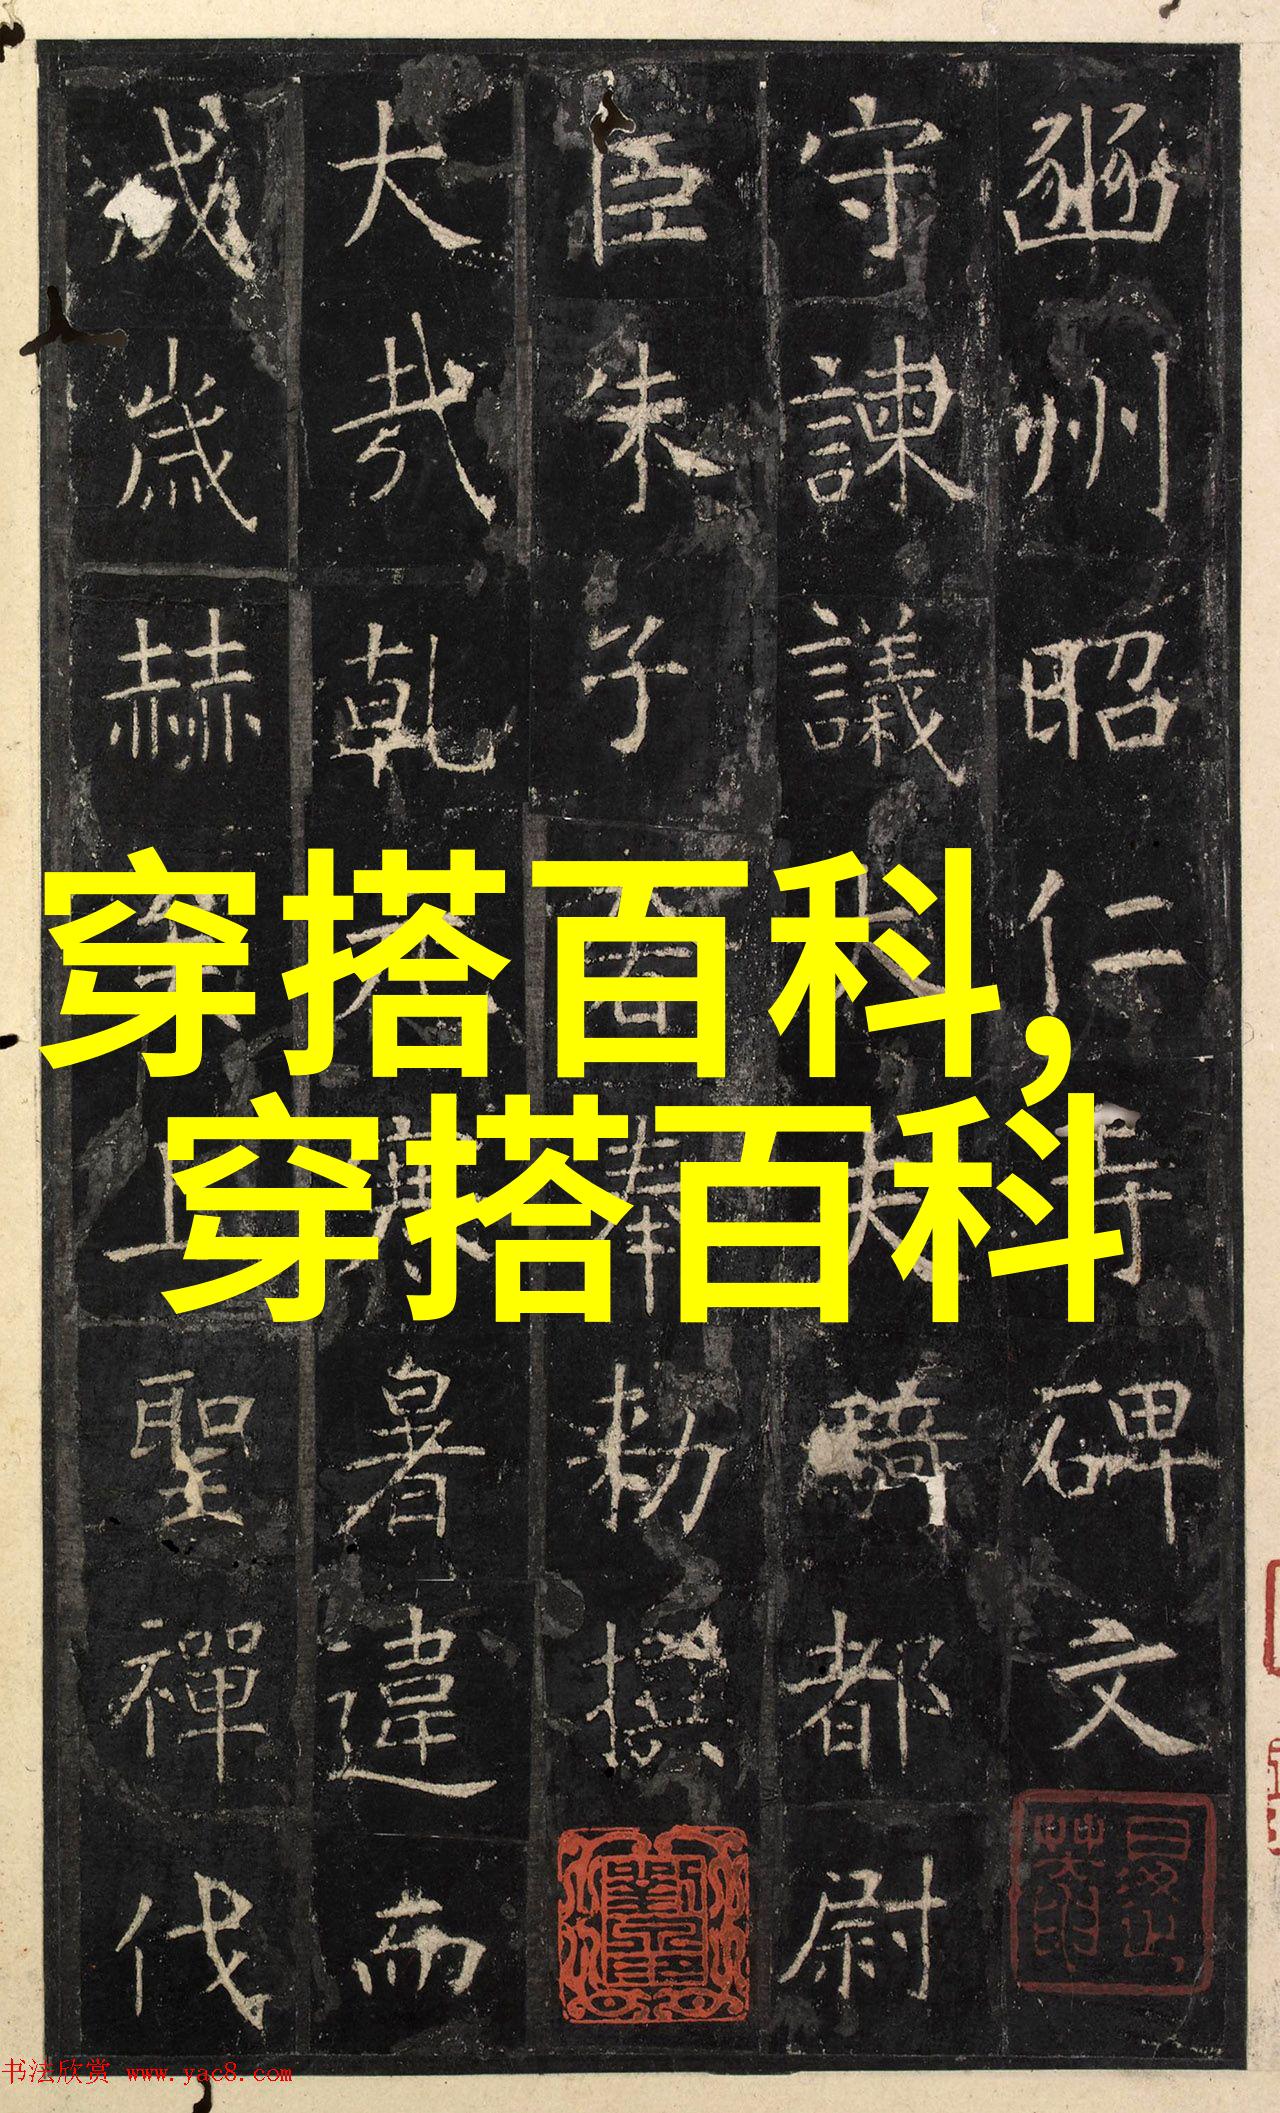 豳州昭仁寺碑文
守諫議大夫騎都尉
臣朱子奢奉敕撰
大哉乾元寒暑違而
成歲赫矣上聖禪代
穿搭百科,
穿搭百科
书法欣赏 www.yac8.com